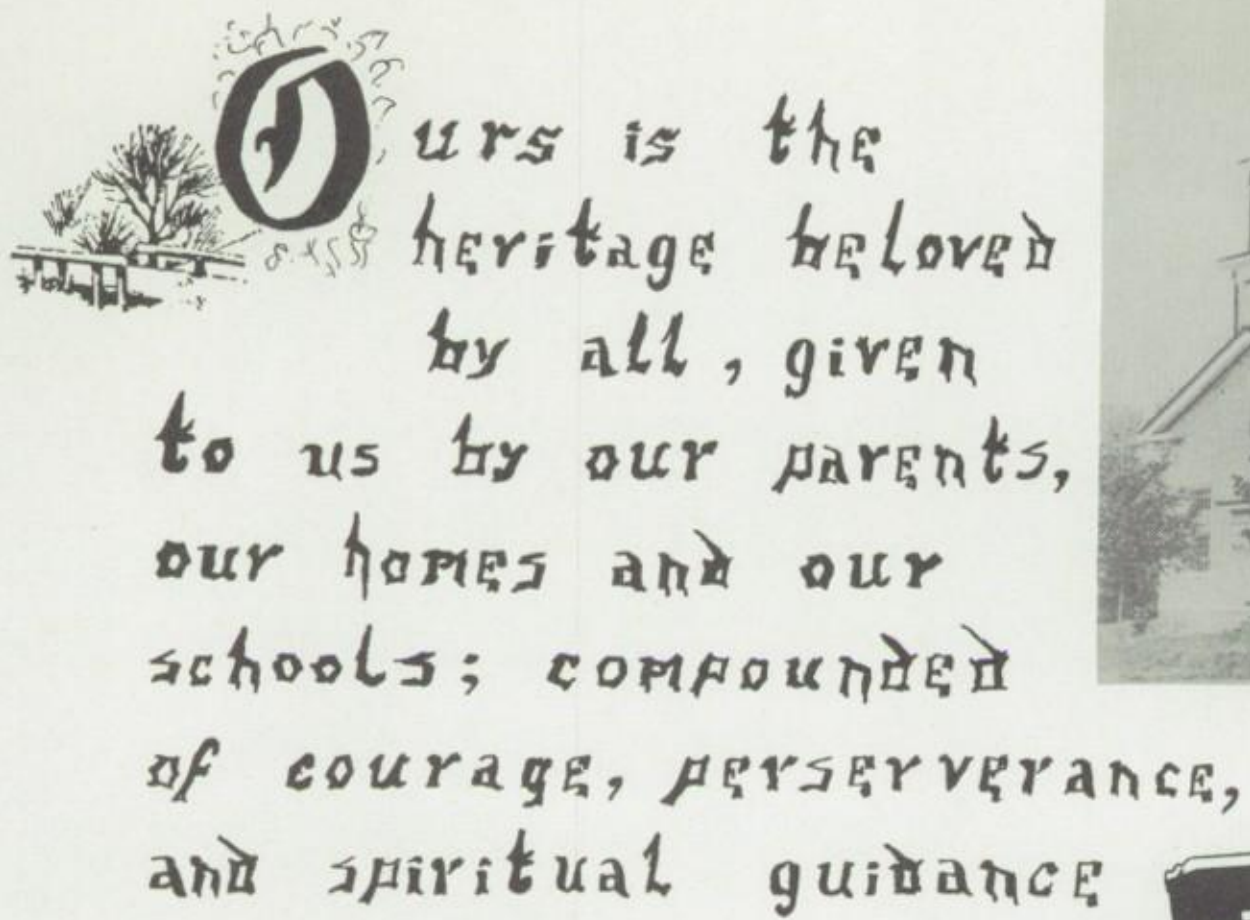 Ours is the
heritage beloved
by all, given
to us by our parents,
our homes and our
schools; compounded
of courage, perserverance,
and spiritual guidance